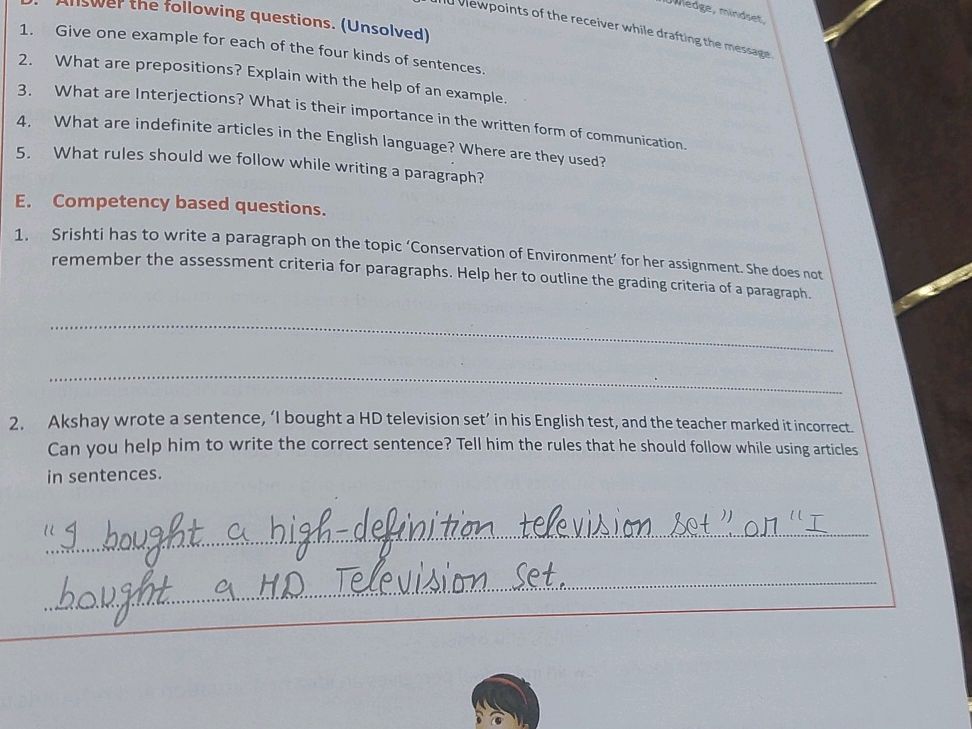 knowledge, mindset,
and viewpoints of the receiver while drafting the message.
D. Answer the following questions. (Unsolved)
1. Give one example for each of the four kinds of sentences.
2. What are prepositions? Explain with the help of an example.
3. What are Interjections? What is their importance in the written form of communication.
4. What are indefinite articles in the English language? Where are they used?
5. What rules should we follow while writing a paragraph?
E. Competency based questions.
1. Srishti has to write a paragraph on the topic ‘Conservation of Environment’ for her assignment. She does not
remember the assessment criteria for paragraphs. Help her to outline the grading criteria of a paragraph.
2. Akshay wrote a sentence, ‘I bought a HD television set’ in his English test, and the teacher marked it incorrect.
Can you help him to write the correct sentence? Tell him the rules that he should follow while using articles
in sentences.
"I bought a high-definition television set". or "I
bought a HD Television set.